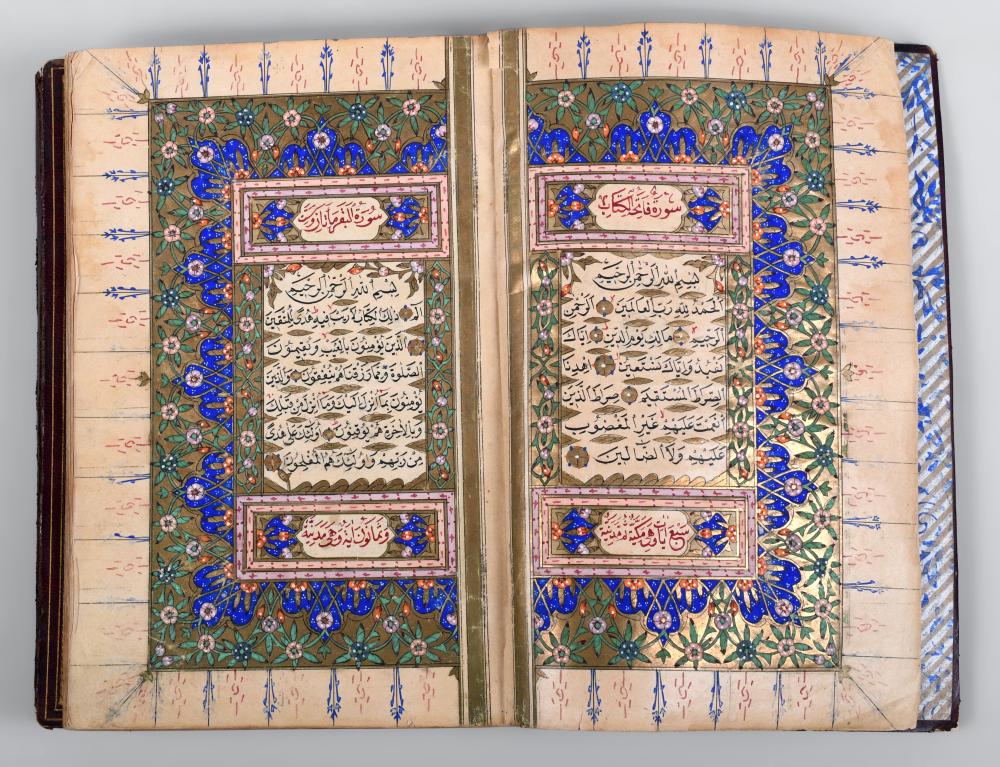 سُورَةُ فَاتِحَةِ الكِتَابِ
بِسْمِ اللهِ الرَّحْمٰنِ الرَّحِيمِ
اَلْحَمْدُ لِلّٰهِ رَبِّ الْعَالَمِينَ اَلرَّحْمٰنِ
الرَّحِيمِ مَالِكِ يَوْمِ الدِّينِ اِيَّاكَ
نَعْبُدُ وَاِيَّاكَ نَسْتَعِينُ اِهْدِنَا
الصِّرَاطَ الْمُسْتَقِيمَ صِرَاطَ الَّذِينَ
اَنْعَمْتَ عَلَيْهِمْ غَيْرِ الْمَغْضُوبِ
عَلَيْهِمْ وَلَا الضَّالِّينَ
سبع ايات وهى مكية مدنية
سُورَةُ البقر ماتان وست
بِسْمِ اللهِ الرَّحْمٰنِ الرَّحِيمِ
الم ذٰلِكَ الْكِتَابُ لَا رَيْبَ فِيهِ هُدًى لِلْمُتَّقِينَ
اَلَّذِينَ يُؤْمِنُونَ بِالْغَيْبِ وَيُقِيمُونَ
الصَّلٰوةَ وَمِمَّا رَزَقْنَاهُمْ يُنْفِقُونَ وَالَّذِينَ
يُؤْمِنُونَ بِمَا اُنْزِلَ اِلَيْكَ وَمَا اُنْزِلَ مِنْ قَبْلِكَ
وَبِالْاٰخِرَةِ هُمْ يُوقِنُونَ اُولٰئِكَ عَلٰى هُدًى
مِنْ رَبِّهِمْ وَاُولٰئِكَ هُمُ الْمُفْلِحُونَ
وثمانون اية وهى مدنية